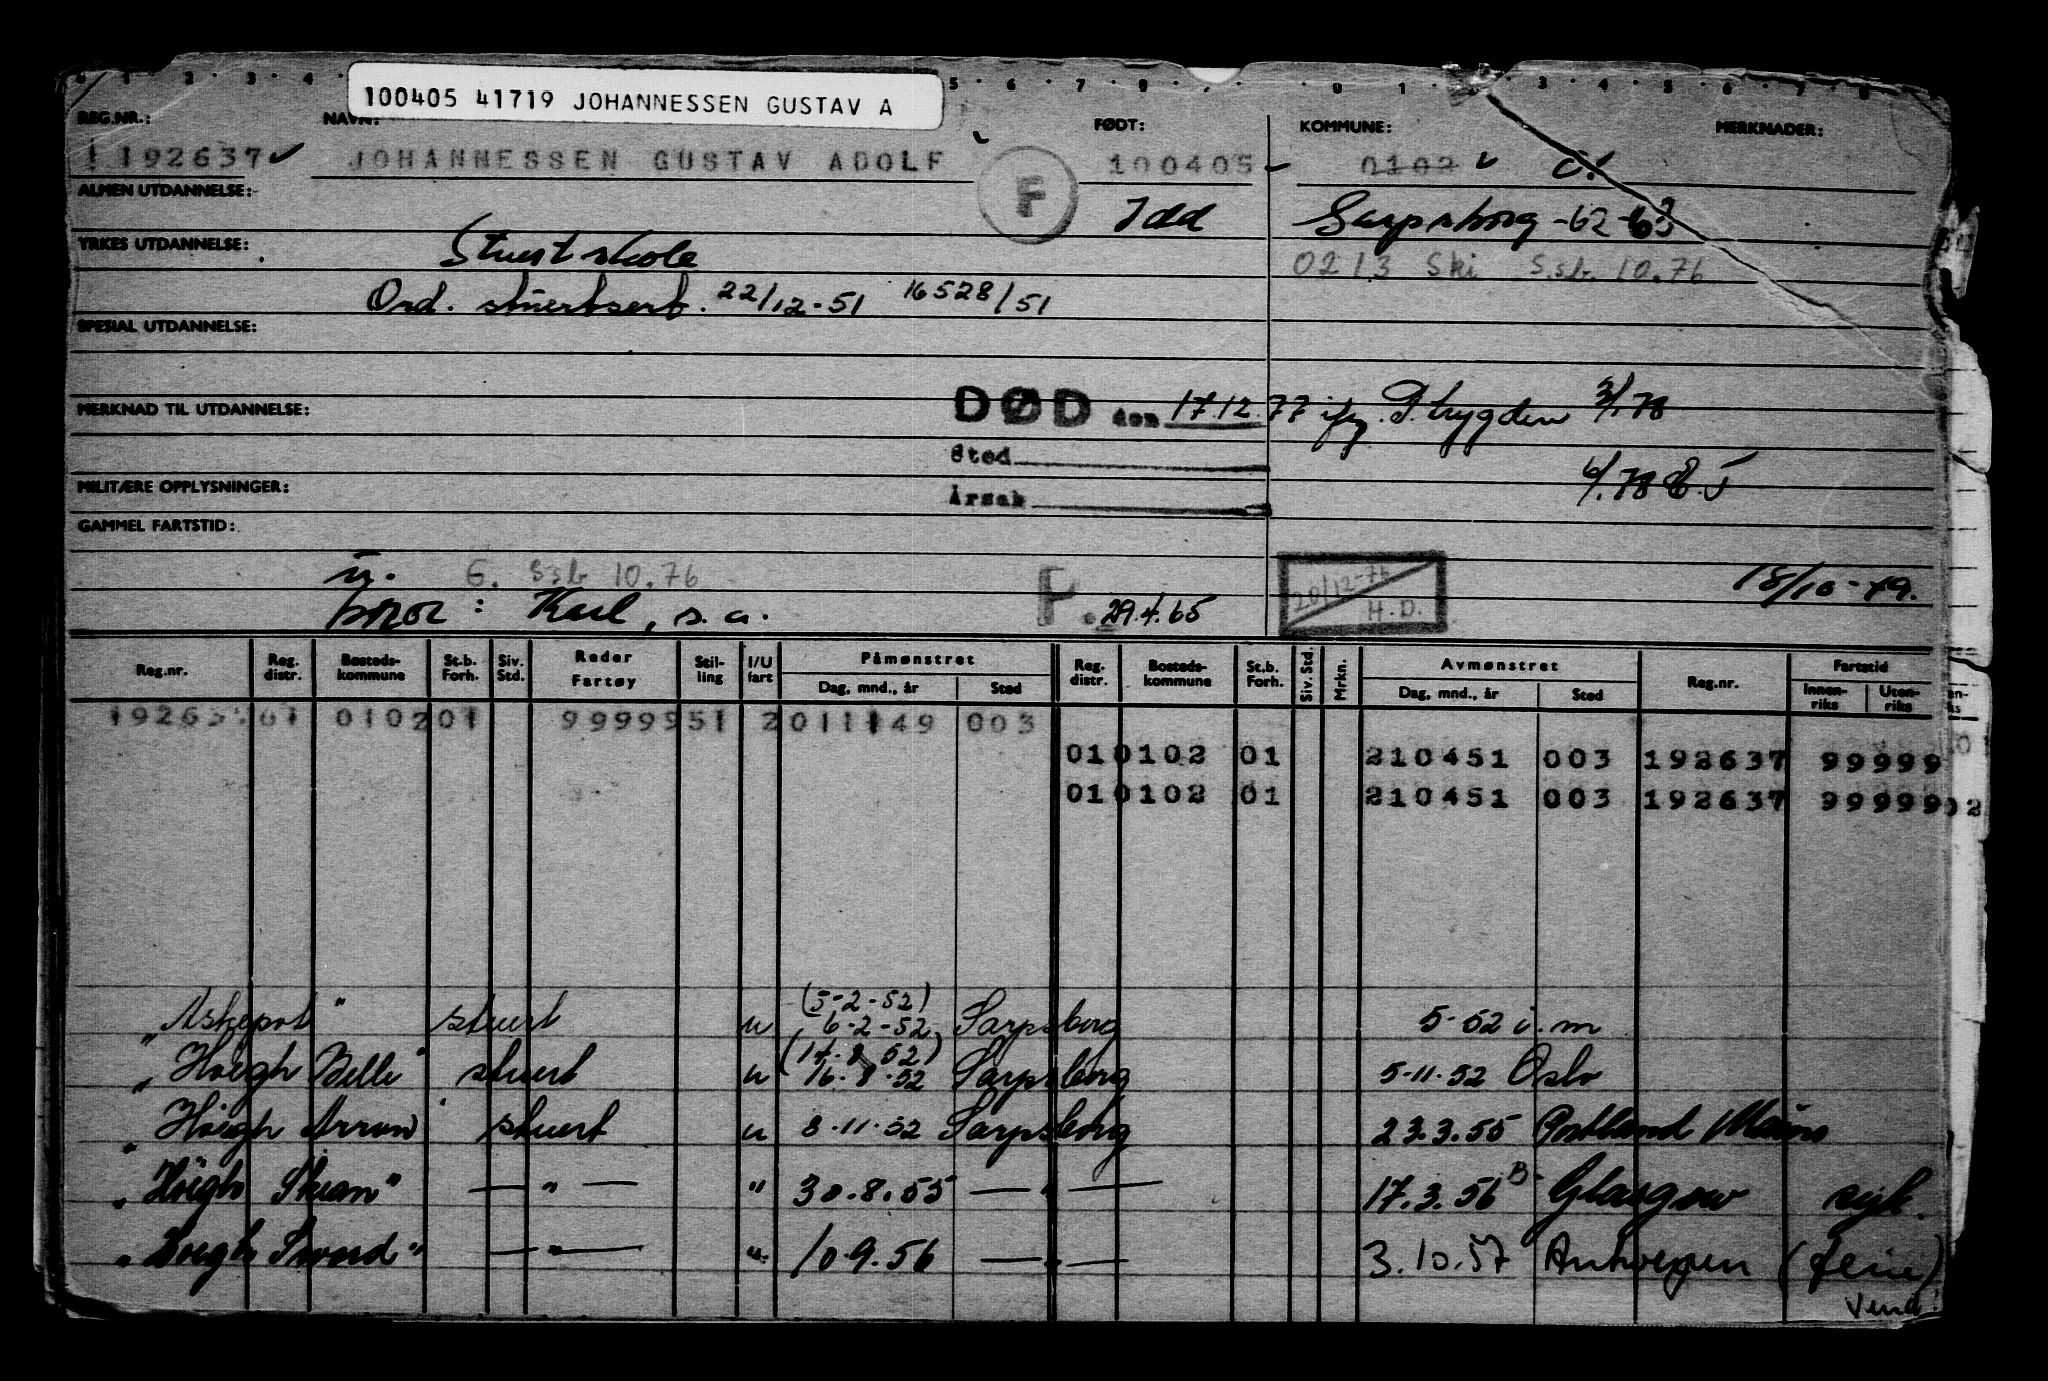 100405 41719 JOHANNESSEN GUSTAV A
REG.NR.: NAVN: FØDT: KOMMUNE: MERKNADER:
192637 JOHANNESSEN GUSTAV ADOLF F 100405 0102
ALMEN UTDANNELSE:
Idd Sarpsborg -62-63
YRKES UTDANNELSE:
Stuertskole
0213 Ski S.sb. 10.76
Ord. stuertsert. 22/12-51 16528/51
SPESIAL UTDANNELSE:
MERKNAD TIL UTDANNELSE:
DØD den 17.12.77 ifg. P.trygden 3/.78
Sted
MILITÆRE OPPLYSNINGER:
6/.78
Årsak
GAMMEL FARTSTID:
G. Ssb 10.76
20/12-76 H.D.
18/10-79.
bror: Karl, s.a. P. 29.4.65
Reg.nr. Reg. distr. Bosteds-kommune St.b. Forh. Siv. Std. Reder Fartøy Stil-ling I/U fart Påmønstret Dag, mnd., år Sted Reg. distr. Bosteds-kommune St.b. Forh. Siv. Std. Mrkn. Avmønstret Dag, mnd., år Sted Reg.nr. Fartstid Innen-riks Uten-riks
192637 01 0102 01 99999 51 2 011149 003
01 0102 01 210451 003 192637 99999
01 0102 01 210451 003 192637 99999 02
(5-2-52)
"Askepot" stuert u 6-2-52 Sarpsborg 5-52 i.m
(14.8.52)
"Høegh Belle" stuert u 16.8.52 Sarpsborg 5-11.52 Oslo
"Høegh Arrow" stuert u 8-11-52 Sarpsborg 23.3.55 Portland Maine
"Høegh Skean" — " — " 30.8.55 — " — 17.3.56 B Glasgow syk.
"Høegh Sword" — " — " 10.9.56 — " — 3.10.57 Antwerpen (ferie)
Vend!